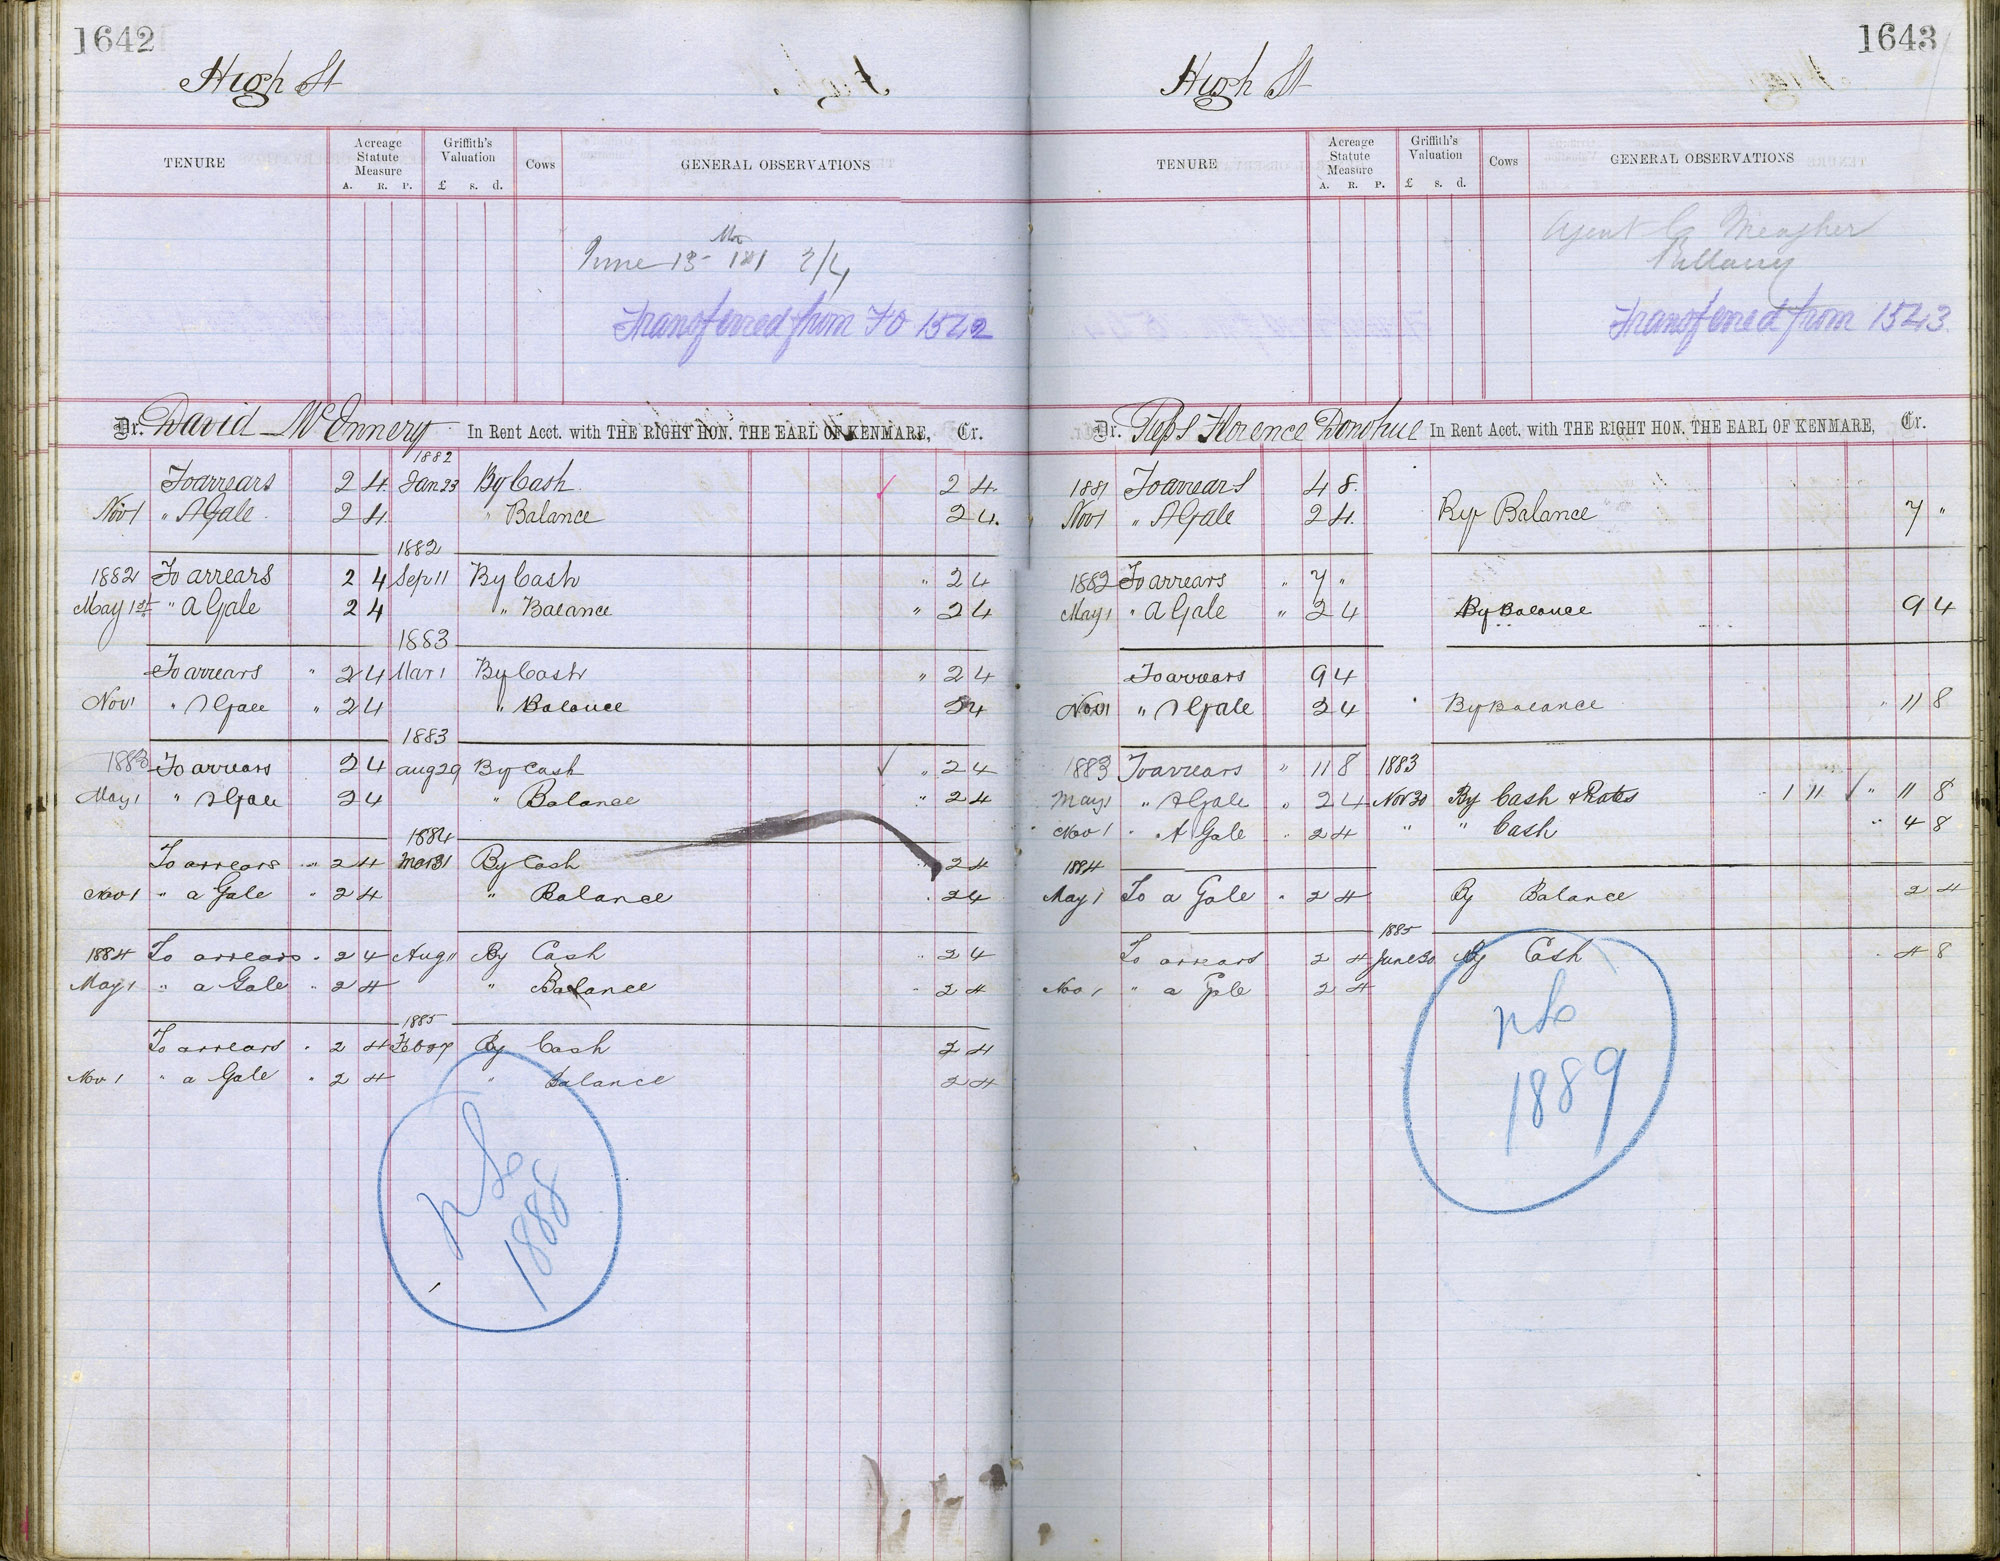 1642
High St
TENURE
Acreage Statute Measure
A. R. P.
Griffith's Valuation
£ s. d.
Cows
GENERAL OBSERVATIONS
June 13 2/4
Transferred from Fo 1542
Dr. David McEnnery In Rent Acct. with THE RIGHT HON. THE EARL OF KENMARE, Cr.
1882
To arrears 2 4 Jan 23 By Cash 2 4
Nov 1 " A Gale 2 4 " Balance 2 4
1882
1882 To arrears 2 4 Sep 11 By Cash " 2 4
May 1st " A Gale 2 4 " Balance " 2 4
1883
To arrears " 2 4 Mar 1 By Cash " 2 4
Nov 1 " A Gale " 2 4 " Balance 2 4
1883
1883 To arrears 2 4 Aug 29 By Cash " 2 4
May 1 " A Gale 2 4 " Balance " 2 4
1884
To arrears " 2 4 Mar 31 By Cash " 2 4
Nov 1 " a Gale " 2 4 " Balance " 2 4
1884 To arrears " 2 4 Aug 11 By Cash " 2 4
May 1 " a Gale " 2 4 " Balance " 2 4
1885
To arrears " 2 4 Feb 27 By Cash 2 4
Nov 1 " a Gale " 2 4 " Balance 2 4
1888
1643
High St
TENURE
Acreage Statute Measure
A. R. P.
Griffith's Valuation
£ s. d.
Cows
GENERAL OBSERVATIONS
Agent C Meagher
Transferred from 1543
Dr. Reps Florence Donohue In Rent Acct. with THE RIGHT HON. THE EARL OF KENMARE, Cr.
1881 To arrears 4 8
Nov 1 " A Gale 2 4 By Balance 7 "
1882 To arrears " 7 "
May 1 " A Gale " 2 4 By Balance 9 4
To arrears 9 4
Nov 1 " A Gale 2 4 By Balance " 11 8
1883 To arrears " 11 8 1883
May 1 " A Gale " 2 4 Nov 30 By Cash & Rates 1 11 " 11 8
Nov 1 " A Gale " 2 4 " " Cash " 4 8
1884
May 1 To a Gale " 2 4 By Balance 2 4
1885
To arrears 2 4 June 30 By Cash " 4 8
Nov 1 " a Gale 2 4
1889